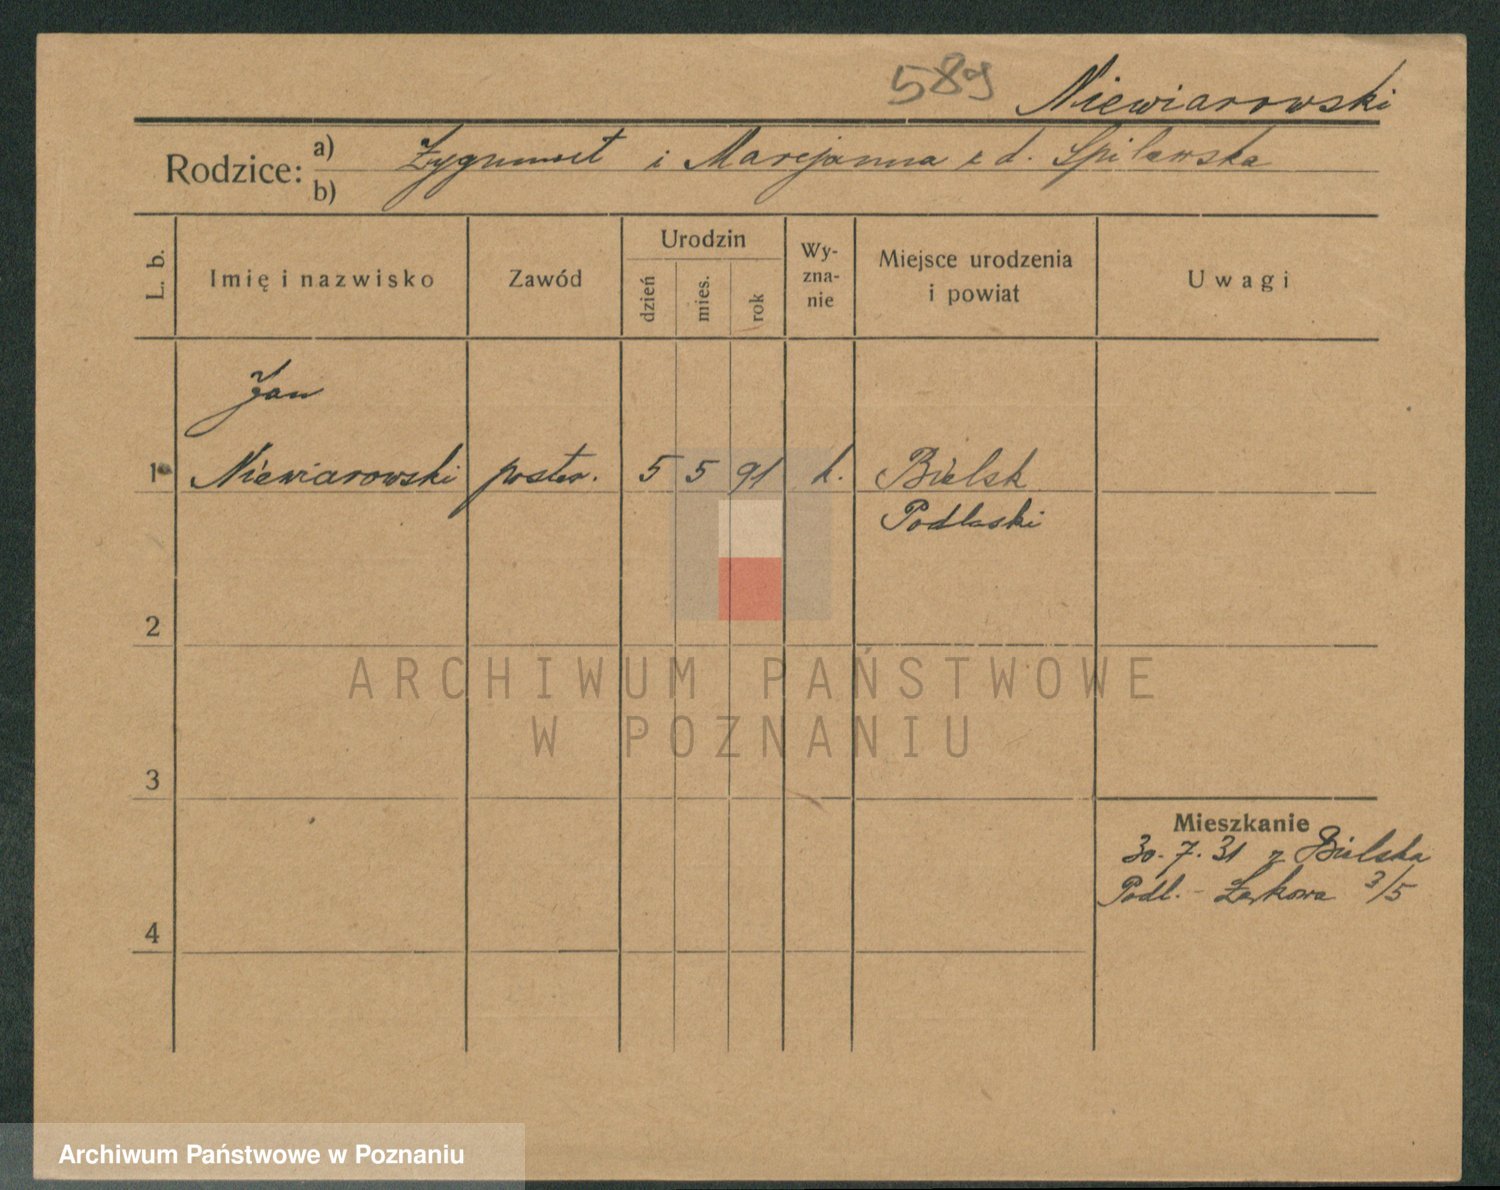 589
Niewiarowski
Rodzice: a) Zygmunt i Marejanna z d. Spilawska
b)
L. b.
Imię i nazwisko
Zawód
Urodzin
dzień
mies.
rok
Wy-
zna-
nie
Miejsce urodzenia
i powiat
Uwagi
Jan
1 Niewiarowski poster. 5 5 91 k. Bielsk
Podlaski
2
ARCHIWUM PAŃSTWOWE
W POZNANIU
3
Mieszkanie
30. 7. 31 z Bielska
Podl. - Łąkowa 3/5
4
Archiwum Państwowe w Poznaniu